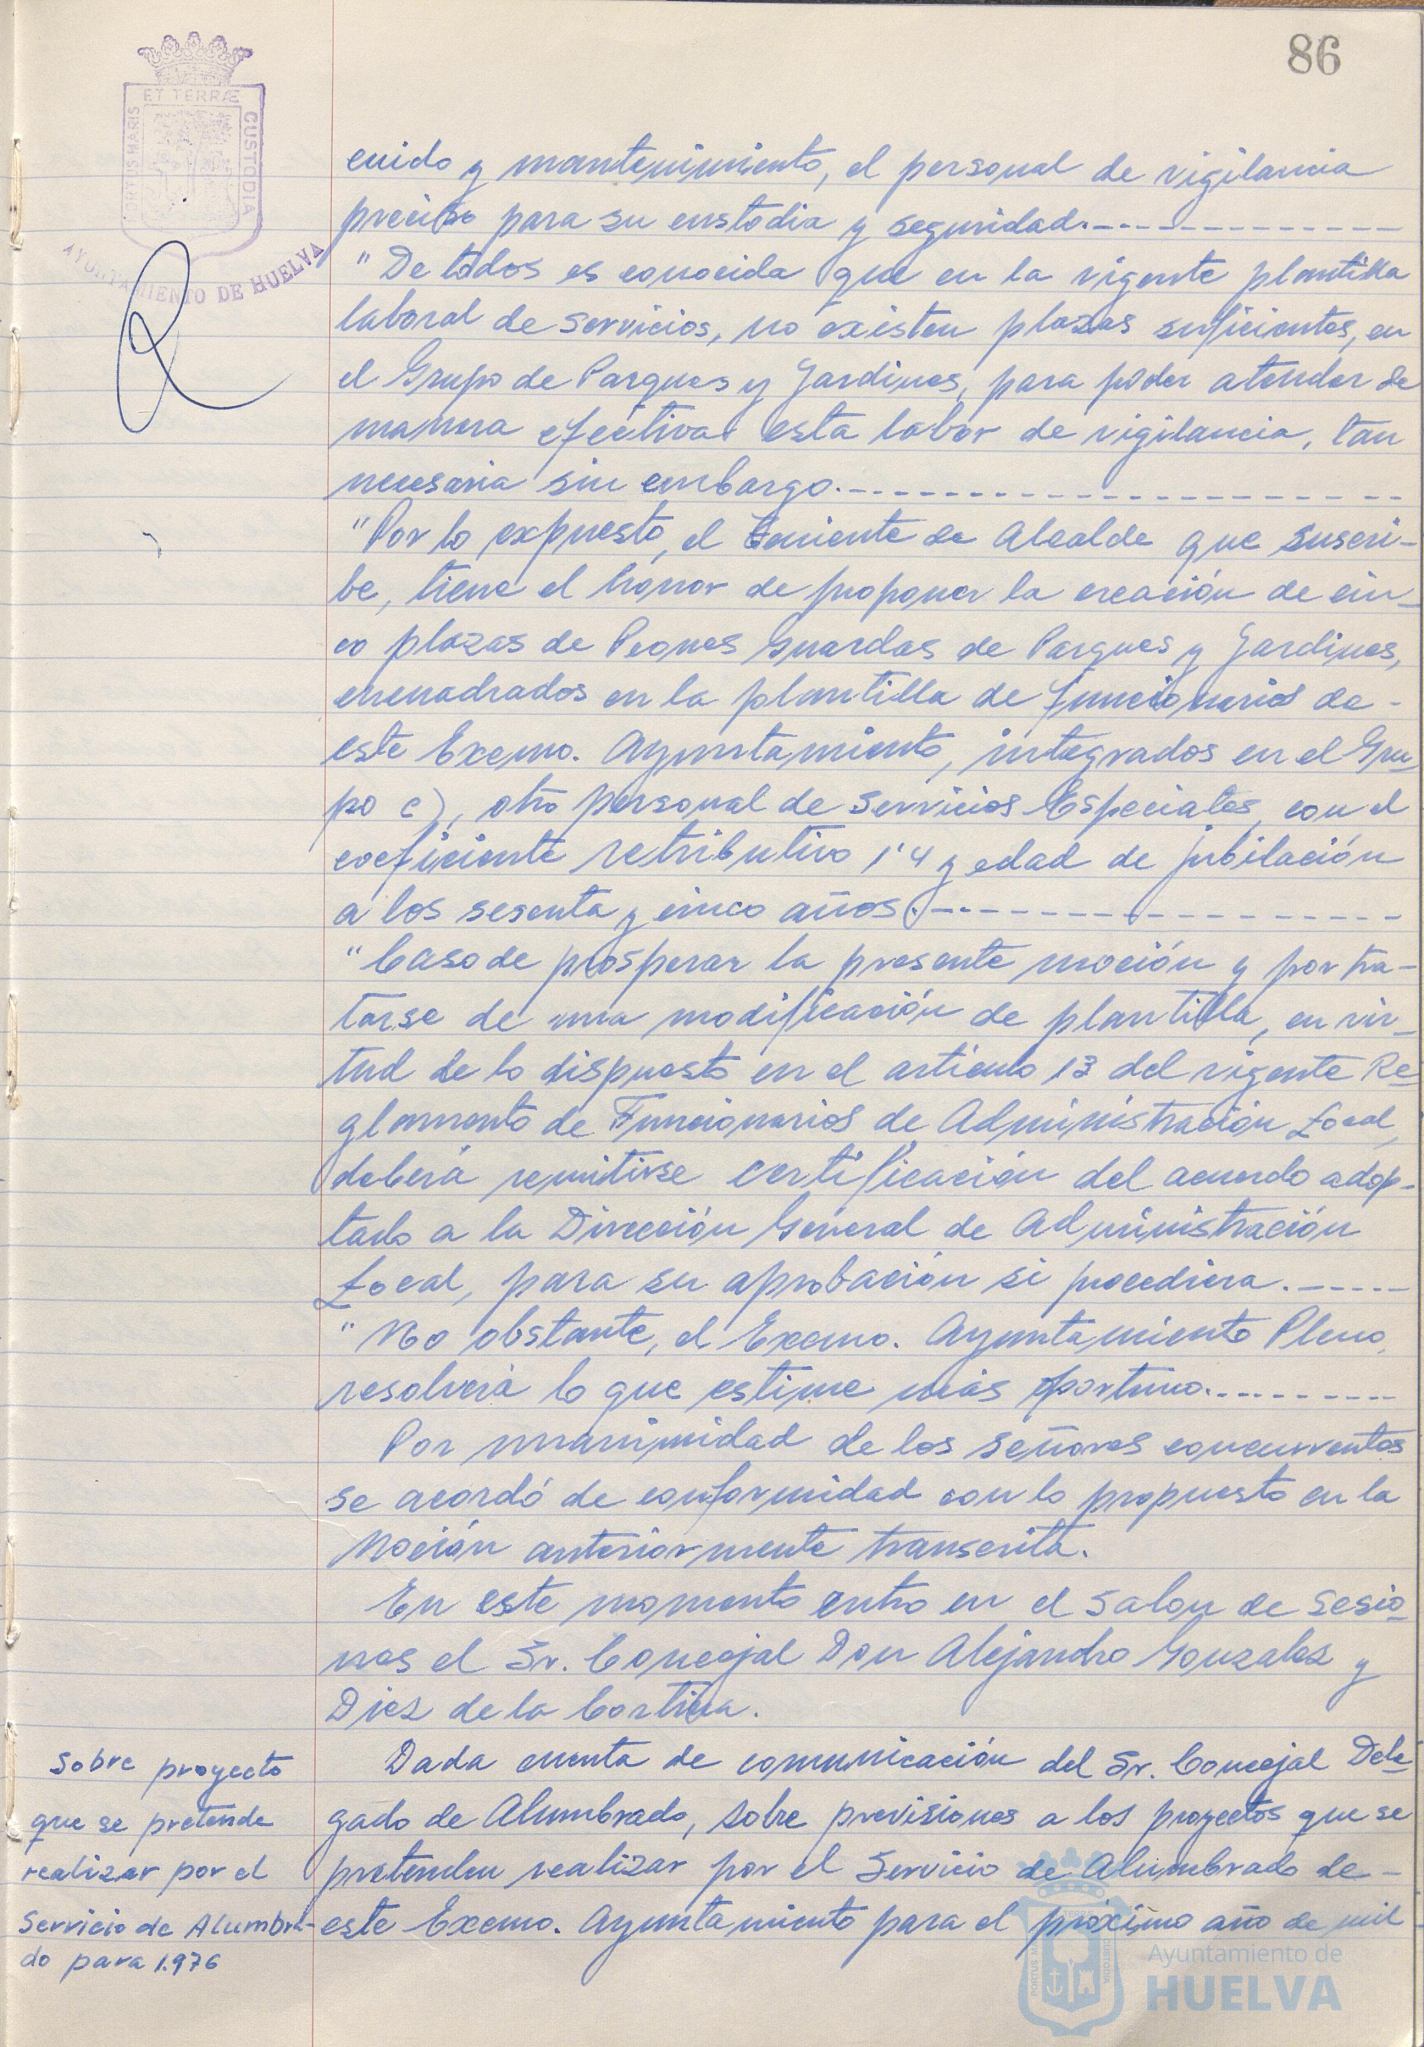 86
ET TERRÆ
PORTUS MARIS
CUSTODIA
AYUNTAMIENTO DE HUELVA
cuido y mantenimiento, el personal de vigilancia
preciso para su custodia y seguridad.
"De todos es conocida que en la vigente plantilla
laboral de servicios, no existen plazas suficientes, en
el Grupo de Parques y Jardines, para poder atender de
manera efectiva esta labor de vigilancia, tan
necesaria sin embargo.
"Por lo expuesto, el Teniente de Alcalde que suscri-
be, tiene el honor de proponer la creación de cin-
co plazas de Peones Guardas de Parques y Jardines,
encuadrados en la plantilla de funcionarios de-
este Excmo. Ayuntamiento, integrados en el Gru-
po c), otro personal de Servicios Especiales, con el
coeficiente retributivo 1'4 y edad de jubilación
a los sesenta y cinco años.
"Caso de prosperar la presente moción y por tra-
tarse de una modificación de plantilla, en vir-
tud de lo dispuesto en el artículo 13 del vigente Re-
glamento de Funcionarios de Administración Local,
deberá remitirse certificación del acuerdo adop-
tado a la Dirección General de Administración
Local, para su aprobación si procediera.
"No obstante, el Excmo. Ayuntamiento Pleno,
resolverá lo que estime más oportuno.
Por unanimidad de los señores concurrentes
se acordó de conformidad con lo propuesto en la
Moción anteriormente transcrita.
En este momento entro en el Salon de Sesio-
nes el Sr. Concejal Don Alejandro Gonzalez y
Diez de la Cortina.
Sobre proyecto
que se pretende
realizar por el
Servicio de Alumbra-
do para 1.976
Dada cuenta de comunicación del Sr. Concejal Dele-
gado de Alumbrado, sobre previsiones a los proyectos que se
pretenden realizar por el Servicio de Alumbrado de-
este Excmo. Ayuntamiento para el próximo año de mil
Ayuntamiento de
HUELVA